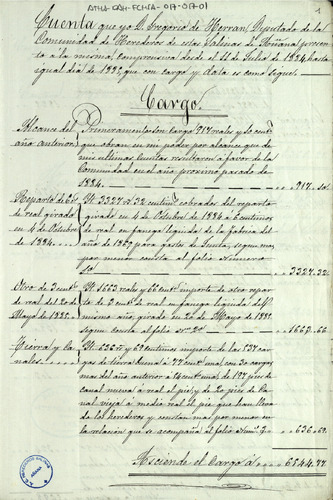 ATHA-CAH-FCHLA-017-017-01
1
Cuenta que yo D. Gregorio de Herran, Diputado de la
Comunidad de Herederos de estas Salinas de Añana, presen-
to á la misma, comprensiva desde el 11 de Julio de 1884, hasta
igual dia de 1885, que con cargo y data es como sigue.
Cargo.
Alcance del
año anterior.
Primeramente son cargo 917 reales y 50 cent.
que obran en mi poder por alcance que de
mis ultimas cuentas resultaron á favor de la
Comunidad en el año proximo pasado de
1884. 917.50.
Reparto de 6 cts
de real girado
en 4 de Octubre
de 1884.
Yt. 3327 rs 32 centimos cobrados del reparto
girado en 4 de Octubre de 1884 á 6 centimos
de real en fanega liquida de la fabrica del
año de 1880 para gastos de Junta, segun mas
por menor consta al folio numero
1º 3327.32.
Otro de 3 cent.
de real del 20 de
Mayo de 1885.
Yt. 1663 reales y 66 cent. importe de otro repar-
to de 3 cent. de real en fanega liquida del
mismo año, girado en 20 de Mayo de 1885.
segun consta al folio nº 2º. 1663.66.
Tierra y ca-
nales.
Yt. 636 rs y 69 centimos importe de las 537 car-
gas de tierra buena á 77 cent. una, con 30 cargas
mas del año anterior á 74 cent. una; de 187 pies de
canal nueva á real el pie; y de 20 pies de ca-
nal vieja á medio real el pie que han lleva-
do los herederos y constan mas por menor en
la relacion que se acompaña al folio num. 3. 636.69.
Asciende el Cargo á 6544.77